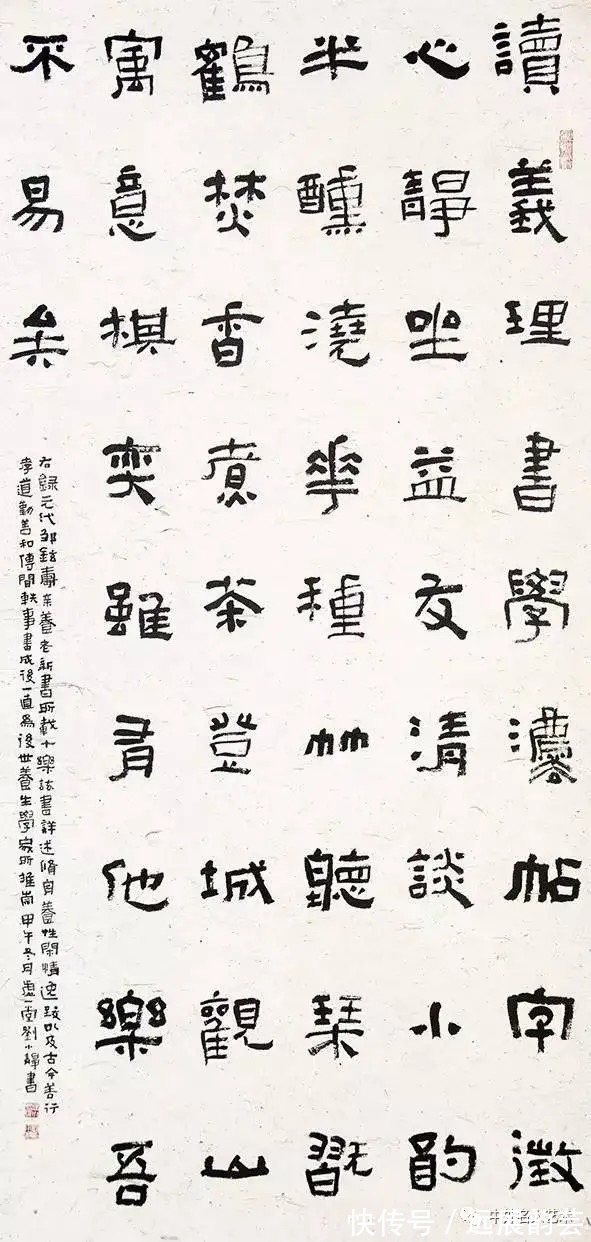 讀義理書學灋帖字澂
心靜坐益友清談小酌
半醺澆華種竹聽琴翫
鶴焚香煮茶登城觀山
寓意棋奕雖有他樂吾
不易矣
右錄元代鄒鉉壽亲養老新書所載十樂該書詳述脩身養性閑情逸致以及古今善行
孝道勤善和傳間軼事書成後一直為後世養生學家所推崇甲午冬月虛一堂劉小靜書
快传号 / 远晨韵芸